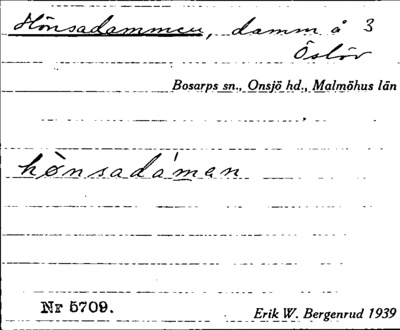 Hönsadammen, damm å 3
Öslöv
Bosarps sn., Onsjö hd., Malmöhus län
hö̀nsadámen
Nr 5709.
Erik W. Bergenrud 1939